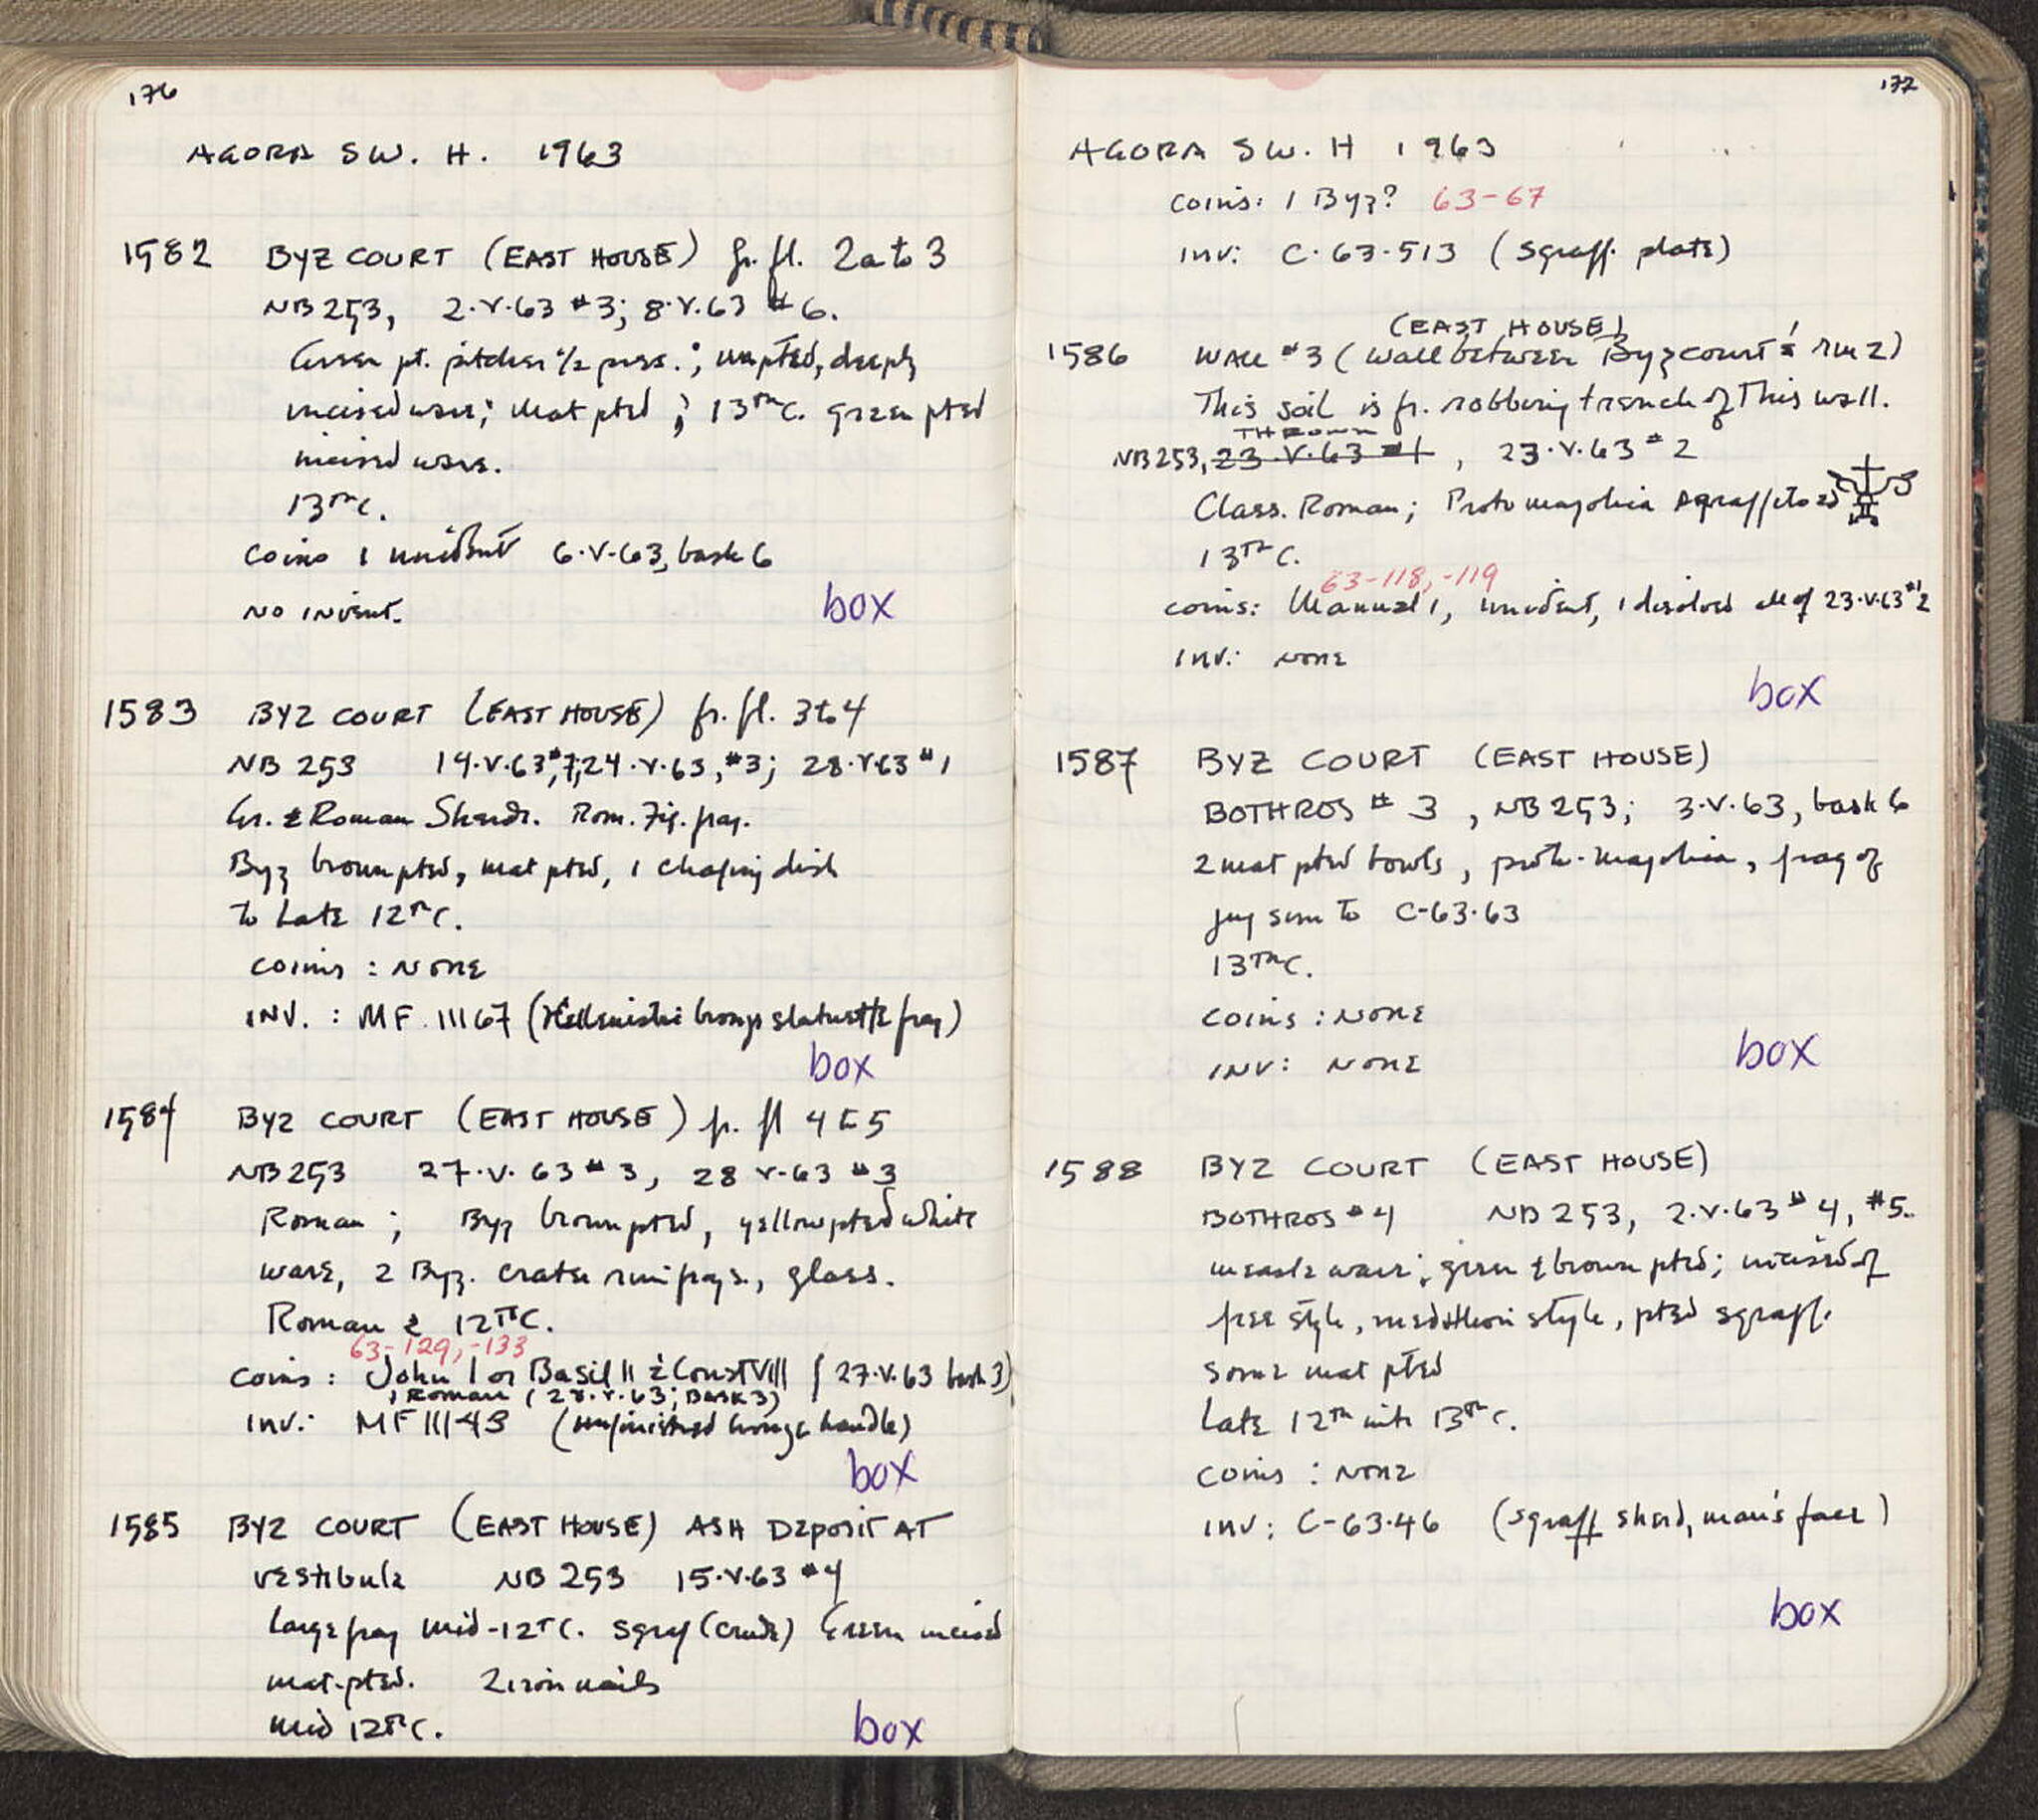 176
AGORA SW. H. 1963
1582 BYZ COURT (EAST HOUSE) fr. fl. 2a to 3
NB 253, 2·V·63 #3; 8·V·63 #6.
Green pt. pitcher 1/2 pres.; unpted, deeply
incised ware; mat pted; 13TH C. green pted
incised ware.
13TH C.
Coins 1 unident 6·V·63, bask 6
NO INVENT.
box
1583 BYZ COURT (EAST HOUSE) fr. fl. 3 to 4
NB 253 14·V·63 #7, 24·V·63, #3; 28·V·63 #1
Gr. & Roman Sherds. Rom. Fig. frag.
Byz brown pted, mat pted, 1 chafing dish
To Late 12TH C.
coins : NONE
INV. : MF 11167 (Hellenistic bronze statuette frag)
box
1584 BYZ COURT (EAST HOUSE) fr. fl 4 to 5
NB 253 27·V·63 #3, 28 V·63 #3
Roman; Byz brown pted, yellow pted white
ware, 2 Byz. crater rim frags., glass.
Roman & 12TH C.
63-129, -133
Coins : John I or Basil II & Const VIII (27·V·63 bask 3)
1 ROMAN (28·V·63; BASK 3)
Inv: MF 11143 (unfinished bronze handle)
box
1585 BYZ COURT (EAST HOUSE) ASH DEPOSIT AT
vestibule NB 253 15·V·63 #4
Large frag mid-12TH C. sgraf (crude) Green incised
mat-pted. 2 iron nails
mid 12TH C.
box
177
AGORA SW. H 1963
Coins: 1 Byz? 63-67
INV: C·63·513 (sgraff. plate)
(EAST HOUSE)
1586 WALL #3 (wall between Byz court & rm 2)
This soil is fr. robbing trench of This wall.
THROWN
NB 253, 23·V·63 #1, 23·V·63 #2
Class. Roman; Proto majolica
13TH C.
63-118, -119
coins: Manuel 1, unident, 1 disolved all of 23·V·63 #2
INV.: NONE
box
1587 BYZ COURT (EAST HOUSE)
BOTHROS #3, NB 253; 3·V·63, bask 6
2 mat pted bowls, proto-majolica, frag of
jug sim to C-63·63
13TH C.
coins : NONE
INV: NONE
box
1588 BYZ COURT (EAST HOUSE)
BOTHROS #4 NB 253, 2·V·63 #4, #5.
measle ware; green & brown pted; incised of
free style, medallion style, pted sgraff.
some mat pted
Late 12TH into 13TH C.
coins : NONE
INV: C-63·46 (sgraff sherd, man's face)
box